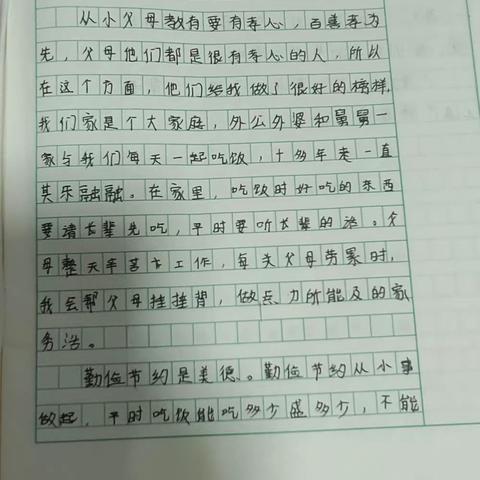 从小父母教有要有孝心，百善孝为
先，父母他们都是很有孝心的人，所以
在这个方面，他们给我做了很好的榜样.
我们家是个大家庭，外公外婆和舅舅一
家与我们每天一起吃饭，十多年老一直
其乐融融。在家里，吃饭时好吃的东西
要请长辈先吃，平时要听长辈的话。父
母整天辛苦工作，每天父母劳累时，
我会帮父母捶捶背，做点力所能及的家
务活。
勤俭节约是美德。勤俭节约从小事
做起，平时吃饭能吃多少盛多少，不能